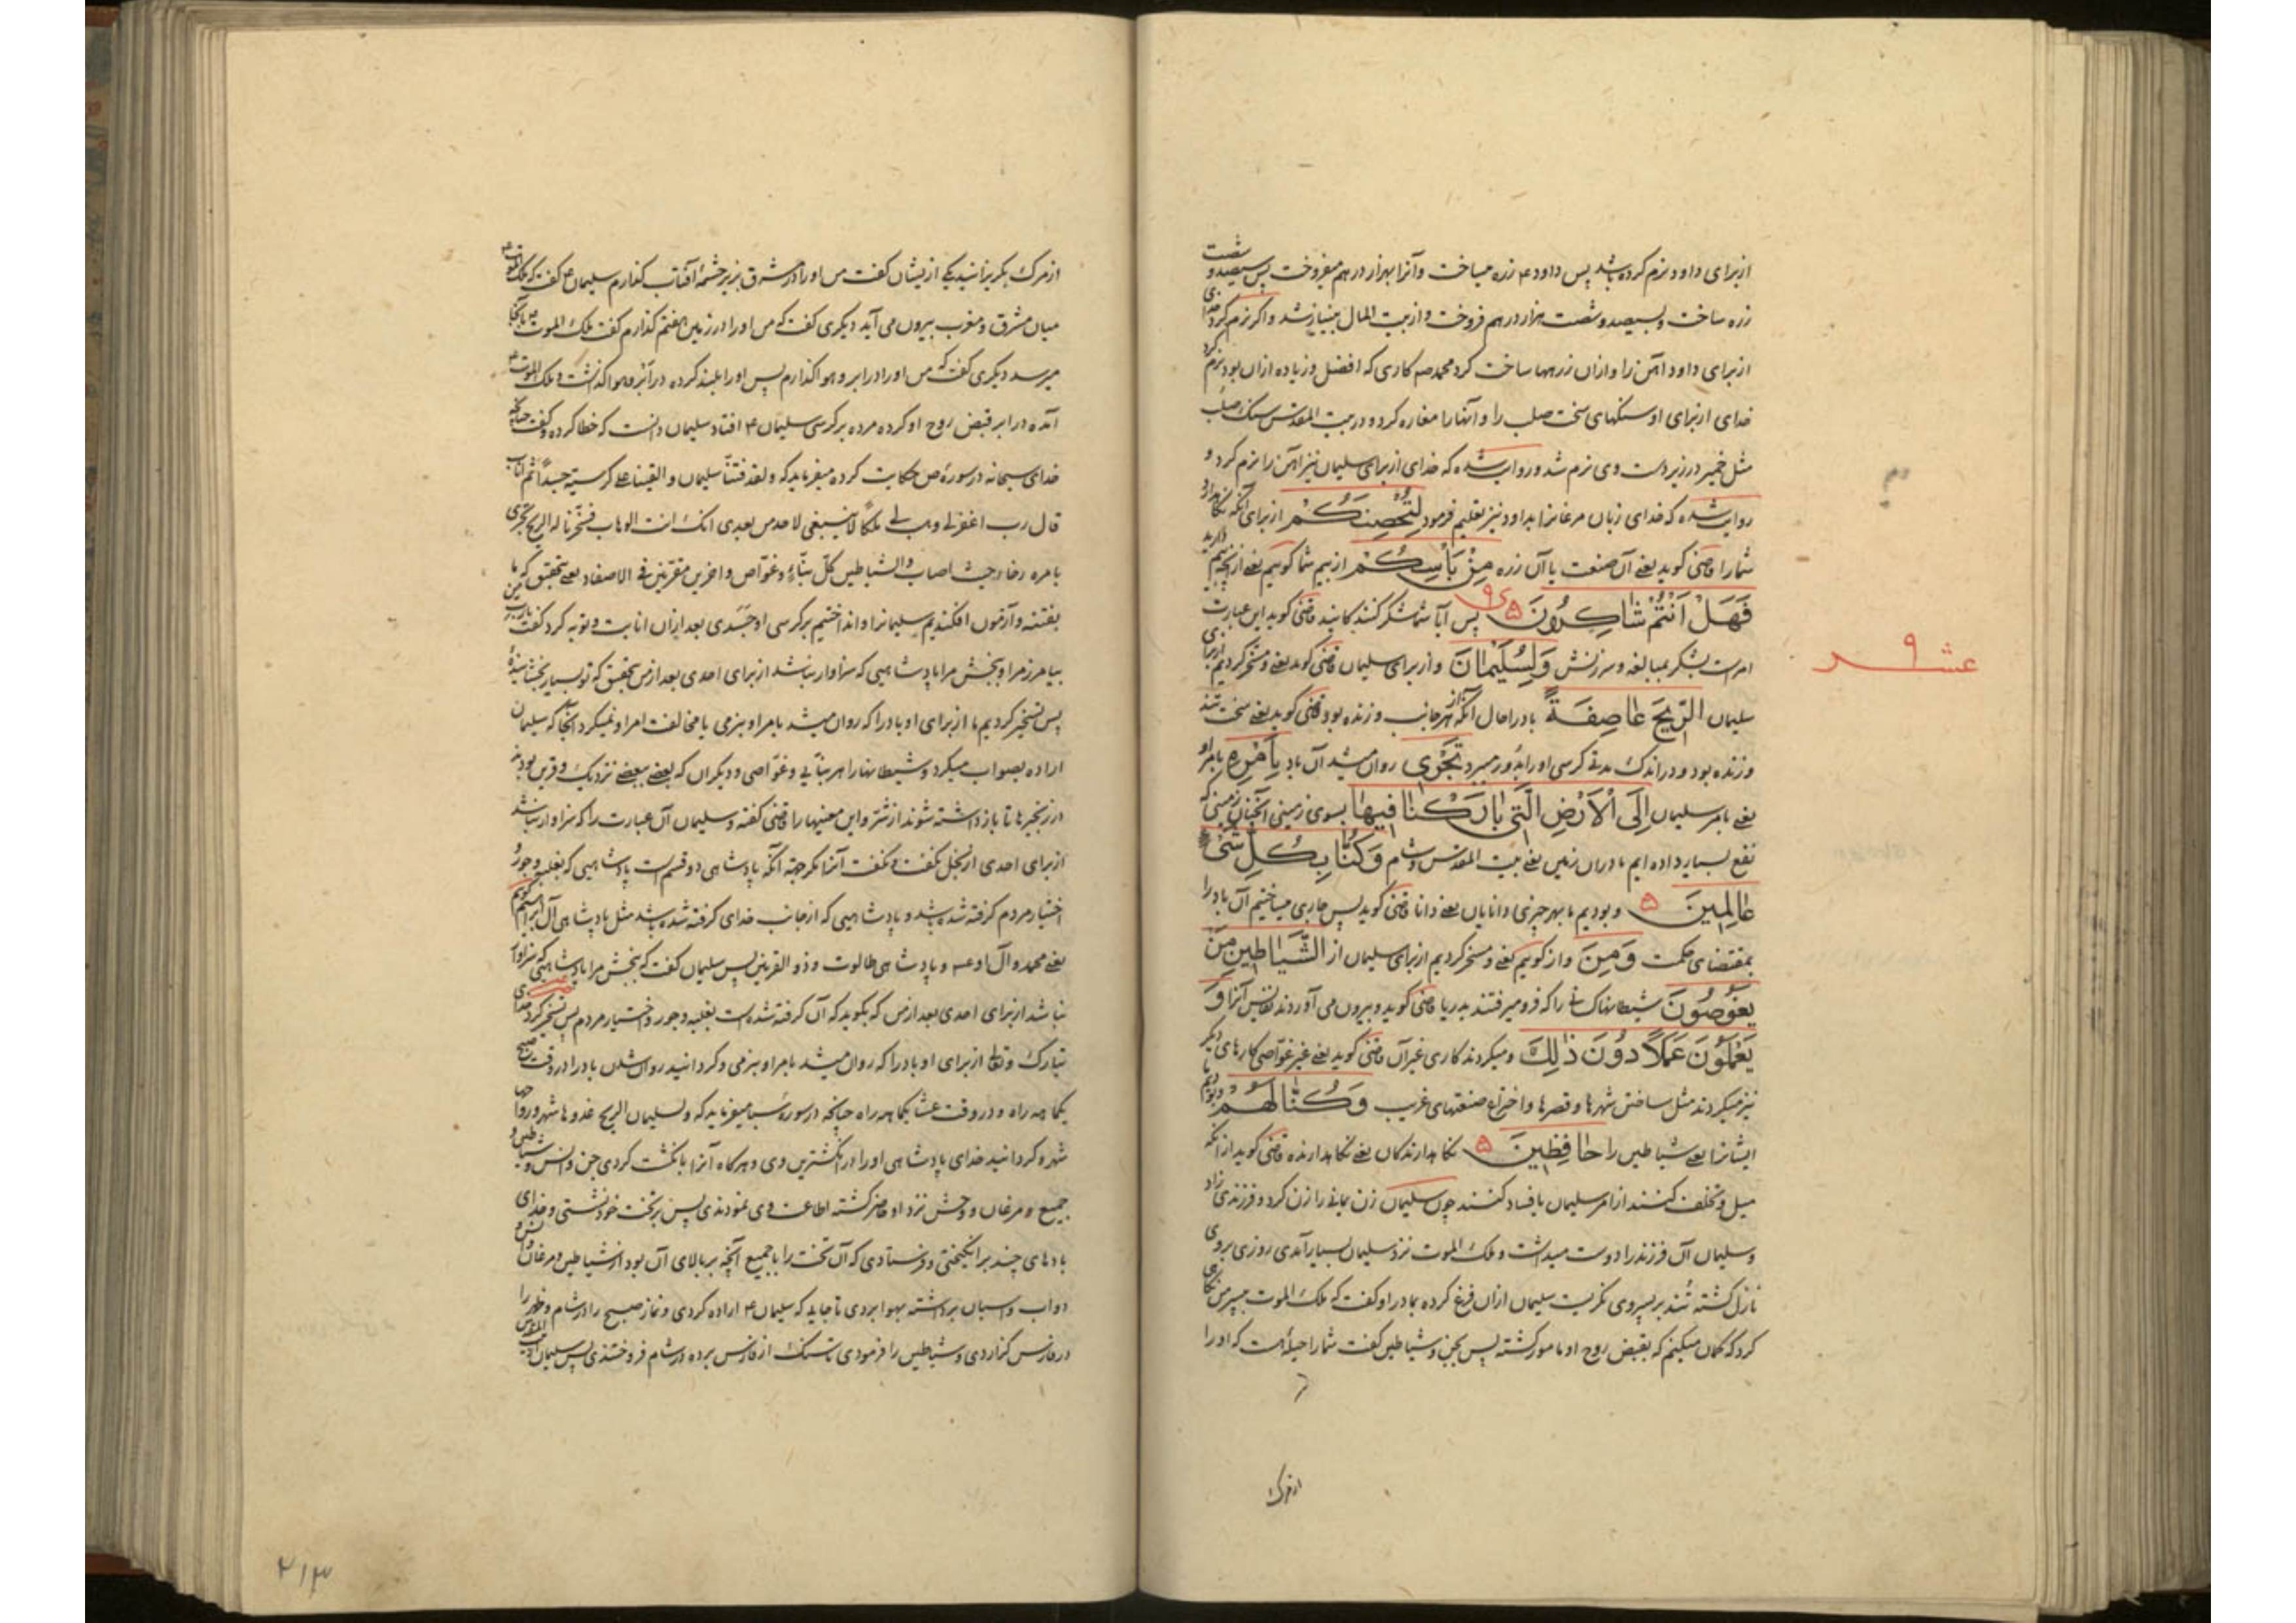 از برای داود نرم کرده باشد پس داود ۴ زره میساخت و آنرا بهزار درهم میفروخت پس سیصد و شصت
زره ساخت و بسیصد و شصت هزار درهم فروخت و از بیت المال بینیاز شد و اکر نرم کرد خدای
از برای داود آهن را و ازان زرهها ساخت کرد محمد صه کاری که افضل و زیاده ازان بود نرم کرد
خدای از برای او سنکهای سخت صلب را و آنها را مغاره کرد و در بیت المقدس سنک صلب
مثل خمیر در زیر دست وی نرم شد و روایت شده که خدای از برای سلیمان نیز آهن را نرم کرد و
روایت شده که خدای زبان مرغانرا بداود نیز تعلیم فرمود لِتُحْصِنَكُمْ از برای آنکه نکاهدارد
شما را قاضی کوید یعنی آن صنعت یا آن زره مِنْ بَأْسِكُمْ از بیم شما کوییم یعنی از آنچه بیم دارید
فَهَلْ أَنْتُمْ شَاكِرُونَ پس آیا شما شکر کنندکانید قاضی کوید این عبارت
امر است بشکر بمبالغه و سرزنش وَلِسُلَيْمَانَ و از برای سلیمان قاضی کوید یعنی و مسخر کردیم از برای
سلیمان الرِّيحَ عَاصِفَةً باد را حال آنکه از هر جانب وزنده بود قاضی کوید یعنی سخت تند
وزنده بود و در اندک مدتی کرسی او را بدور میبرد تَجْرِي روان میشد آن باد بِأَمْرِهِ بامر او
یعنی بامر سلیمان إِلَى الْأَرْضِ الَّتِي بَارَكْنَا فِيهَا بسوی زمینی آنچنان زمینی که
نفع بسیار داده ایم ما دران زمین یعنی بیت المقدس و شام وَكُنَّا بِكُلِّ شَيْءٍ
عَالِمِينَ و بودیم ما بهر چیزی دانایان یعنی دانا قاضی کوید پس جاری میساختیم آن باد را
بمقتضای حکمت وَمِنَ و از کوییم یعنی و مسخر کردیم از برای سلیمان از الشَّيَاطِينِ مَنْ
يَغُوصُونَ شیطانها کسانی را که فرو میرفتند بدریا قاضی کوید و بیرون می آوردند نفایس آنرا وَ
يَعْمَلُونَ عَمَلًا دُونَ ذَلِكَ و میکردند کاری غیر آن قاضی کوید یعنی غیر غواصی کارهای دیکر
نیز میکردند مثل ساختن شهرها و قصرها و اختراع صنعتهای غریب وَكُنَّا لَهُمْ و بودیم ما
ایشانرا یعنی شیاطین را حَافِظِينَ نکاهدارندکان یعنی نکاهدارنده قاضی کوید از آنکه
میل و تخلف کنند از امر سلیمان یا فساد کنند چون سلیمان زن را زن کرد و فرزندی زاد
و سلیمان آن فرزند را دوست میداشت و ملک الموت نزد سلیمان بسیار آمدی روزی بر وی
نازل کشته تند بر پسر وی نکریست سلیمان ازان فزع کرده بمادر او کفت که ملک الموت بپسر من نکاهی
کرد که کمان میکنم که بقبض روح او مامور کشته پس بجن و شیاطین کفت شما را حیلهٔ هست که او را
از مرک
عشر
۹
از مرک بکریزانید یکی از ایشان کفت من او را در مشرق بزیر چشمهٔ آفتاب کذارم سلیمان ۴ کفت که ملک الموت ۴
میان مشرق و مغرب بیرون می آید دیکری کفت که من او را در زمین هفتم کذارم کفت ملک الموت ۴ بآنجا
میرسد دیکری کفت که من او را در ابر و هوا کذارم پس او را بلند کرده در ابر و هوا کذاشت و ملک الموت ۴
آمده در ابر قبض روح او کرده مرده بر کرسی سلیمان ۴ افتاد سلیمان دانست که خطا کرده و کفت چنانکه
خدای سبحانه در سورهٔ ص حکایت کرده میفرماید که ولقد فتنا سلیمان و القینا علی کرسیه جسداً ثم اناب
قال رب اغفر لی و هب لی ملکا لا ینبغی لاحد من بعدی انک انت الوهاب فسخرنا له الریح تجری
بامره رخاء حیث اصاب و الشیاطین کل بناء و غواص و اخرین مقرنین فی الاصفاد یعنی بتحقیق که ما
بفتنه و آزمون افکندیم سلیمانرا و انداختیم بر کرسی او جسدی بعد ازان انابت و توبه کرد کفت یارب
بیامرز مرا و ببخش مرا پادشاهیی که سزاوار نباشد از برای احدی بعد از من بتحقیق که تو بسیار بخشایندهٔ
پس تسخیر کردیم ما از برای او باد را که روان میشد بامر او بنرمی یا مخالفت امر او نمیکرد آنجا که سلیمان
اراده بصواب میکرد و شیطانها را هر بنایی و غواصی و دیکران که بعضی ببعضی نزدیک و قرین بودند
در زنجیرها تا باز داشته شوند از شر و این معنیها را قاضی کفته و سلیمان آن عبارت را که سزاوار نباشد
از برای احدی از بخل نکفت و نکفت آنرا مکر جهة آنکه پادشاهی دو قسم است پادشاهیی که بغلبه و جور و
اختیار مردم کرفته شده باشد و پادشاهیی که از جانب خدای کرفته شده باشد مثل پادشاهی آل ابراهیم کوییم
یعنی محمد و آل او عه و پادشاهی طالوت و ذو القرنین پس سلیمان کفت که ببخش مرا پادشاهیی که سزاوار
نباشد از برای احدی بعد از من که بکوید که آن کرفته شده است بغلبه و جور و اختیار مردم پس تسخیر کرد خدای
تبارک و تعالی از برای او باد را که روان میشد بامر او بنرمی و کردانید روان شدن باد را در وقت صبح
یکماهه راه و در وقت عشا یکماهه راه چنانچه در سورهٔ سبا میفرماید که ولسلیمان الریح غدوها شهر و رواحها
شهر و کردانید خدای پادشاهی او را در انکشترین وی و هرکاه آنرا بانکشت کردی جن و انس و شیاطین و
جمیع مرغان و وحش نزد او حاضر کشته اطاعت وی نمودندی پس بر تخت خود نشستی و خدای
بادهای چند برانکیختی و فرستادی که آن تخت را با جمیع آنچه بر بالای آن بود از شیاطین و مرغان و انس و
دواب و اسبان برداشته بهوا بردی تا جایی که سلیمان ۴ اراده کردی و نماز صبح را در شام و ظهر را
در فارس کزاردی و شیاطین را فرمودی تا سنک از فارس برده در شام فروختندی پس سلیمان
۲۱۳